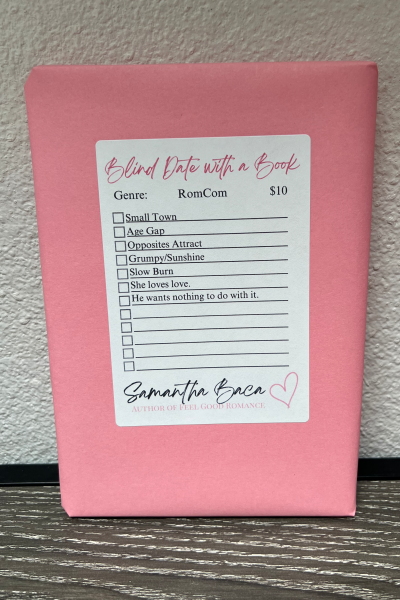 Blind Date with a Book
Genre: RomCom $10
Small Town
Age Gap
Opposites Attract
Grumpy/Sunshine
Slow Burn
She loves love.
He wants nothing to do with it.
Samantha Baca
AUTHOR OF FEEL GOOD ROMANCE